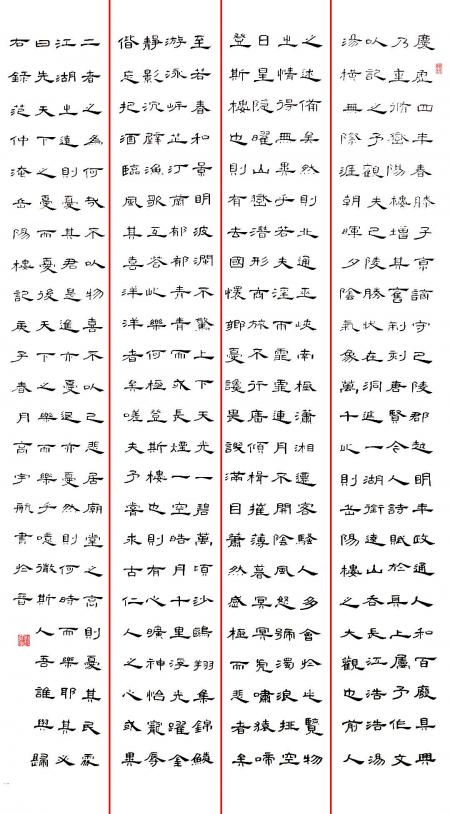 慶曆四年春滕子京謫守巴陵郡越明年政通人和百廢具興
乃重脩嶽陽樓增其舊制刻唐賢今人詩賦於其上屬予作文
以記之予觀夫巴陵勝狀在洞庭一湖銜遠山吞長江浩浩湯
湯橫無際涯朝暉夕陰氣象萬千此則岳陽樓之大觀也前人
之述備矣然則北通巫峽南極瀟湘遷客騷人多會於此覽物
之情得無異乎若夫淫雨霏霏連月不開陰風怒號濁浪排空
日星隱曜山嶽潛形商旅不行檣傾楫摧薄暮冥冥虎嘯猿啼
登斯樓也則有去國懷鄉憂讒畏譏滿目蕭然感極而悲者矣
至若春和景明波瀾不驚上下天光一碧萬頃沙鷗翔集錦鱗
游泳岸芷汀蘭郁郁青青而或長煙一空皓月千里浮光躍金
靜影沉璧漁歌互答此樂何極登斯樓也則有心曠神怡寵辱
偕忘把酒臨風其喜洋洋者矣嗟夫予嘗求古仁人之心或異
二者之為何哉不以物喜不以己悲居廟堂之高則憂其民處
江湖之遠則憂其君是進亦憂退亦憂然則何時而樂耶其必
曰先天下之憂而憂後天下之樂而樂乎噫微斯人吾誰與歸
右錄范仲淹岳陽樓記庚子春月高宇航書於晉